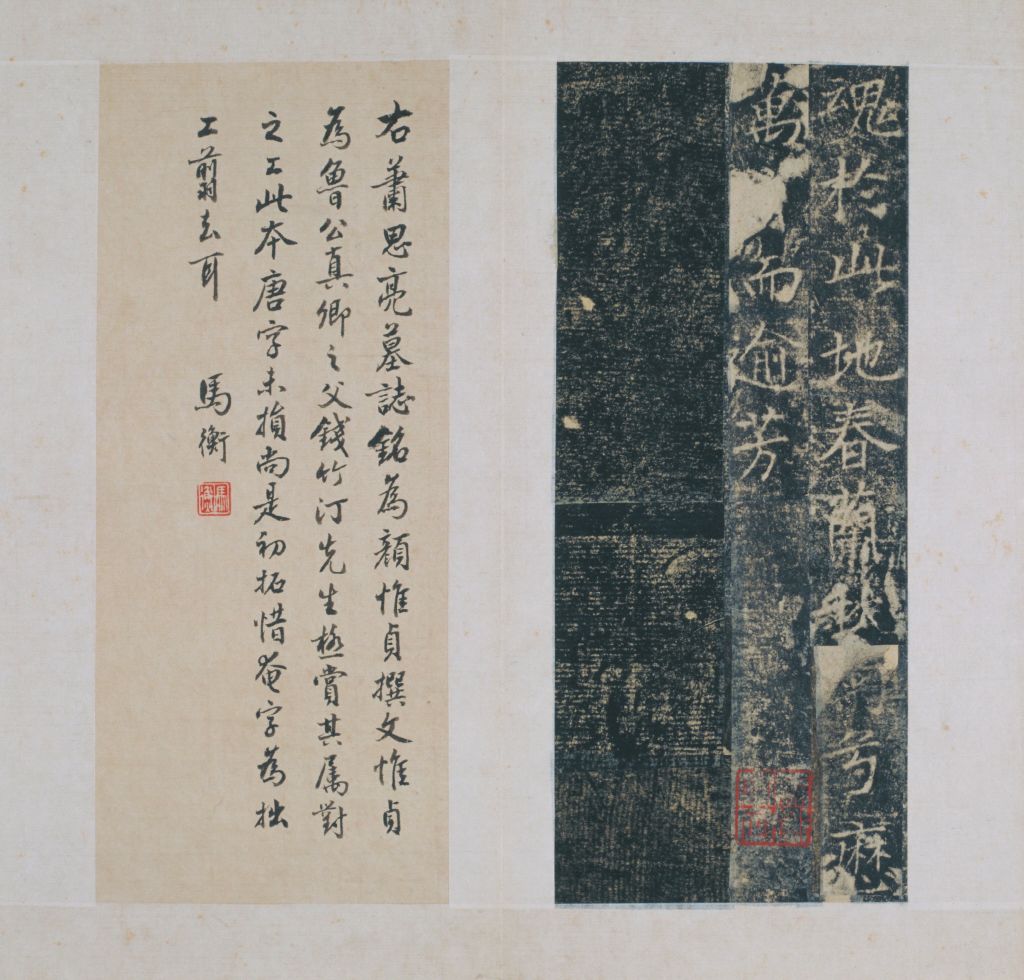 魂於此地春蘭秋菊方歷
萬古而逾芳
右蕭思亮墓誌銘為顏惟貞撰文惟貞
為魯公真卿之父錢竹汀先生極賞其屬對
之工此本唐字未損尚是初拓惜奄字為拙
工翦去耳
馬衡
馬衡